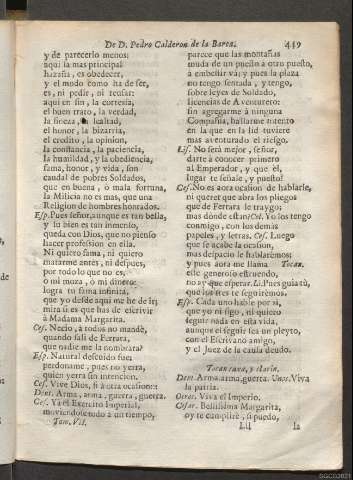 De D. Pedro Calderon de la Barca. 449
y de parecerlo menos:
aqui la mas principal
hazaña, es obedecer,
y el modo como ha de ser,
es, ni pedir, ni reusar:
aqui en fin, la cortesia,
el buen trato, la verdad,
la fineza, la lealtad,
el honor, la bizarria,
el credito, la opinion,
la constancia, la paciencia,
la humildad, y la obediencia,
fama, honor, y vida, son
caudal de pobres Soldados,
que en buena, ò mala fortuna,
la Milicia no es mas, que una
Religion de hombres honrados.
Esp. Pues señor, aunque es tan bella,
y tu bien es tan inmenso,
queda con Dios, que no pienso
hacer profession en ella.
Ni quiero fama, ni quiero
matarme antes, ni despues,
por todo lo que no es,
ò mi moza, ò mi dinero:
logra tu fama infinita,
que yo desde aqui me he de ir;
mira si es que has de escrivir
à Madama Margarita.
Ces. Necio, à todos no mandè,
quando salì de Ferrara,
que nadie me la nombrara?
Esp. Natural descuido fue:
perdoname, pues no yerra,
quien yerra sin intencion.
Ces. Vive Dios, si à otra ocasion::
Dent. Arma, arma, guerra, guerra.
Ces. Yà el Exercito Imperial,
moviendose todo à un tiempo,
Tom. VII.
parece que las montañas
muda de un puesto à otro puesto,
à embestir và; y pues la plaza
no tengo sentada, y tengo,
sobre leyes de Soldado,
licencias de Aventurero:
sin agregarme à ninguna
Compañia, hallarme intento
en la que en la lid tuviere
mas aventurado el riesgo.
Lis. No serà mejor, señor,
darte à conocer primero
al Emperador, y que èl,
lugar te señale, y puesto?
Ces. No es aora ocasion de hablarle,
ni querer que abra los pliegos
que de Ferrara le traygos
mas dònde estàn? Col. Yo los tengo
conmigo, con los demàs
papeles, y letras. Ces. Luego
que se acabe la ocasion,
mas despacio le hablarèmos;
y pues aora me llama Tocan.
este generoso estruendo,
no ay que esperar. Li. Pues guia tù,
que los tres te seguirèmos.
Esp. Cada uno hable por sì,
que yo ni sigo, ni quiero
seguir nada en esta vida,
aunque el seguir sea un pleyto,
con el Escrivano amigo,
y el Juez de la causa deudo.
Tocan caxa, y clarin.
Dent. Arma, arma, guerra. Unos. Viva
la patria.
Otros. Viva el Imperio.
Cesar. Bellissima Margarita,
oy te cumplirè, si puedo,
Lll la
SGC03821